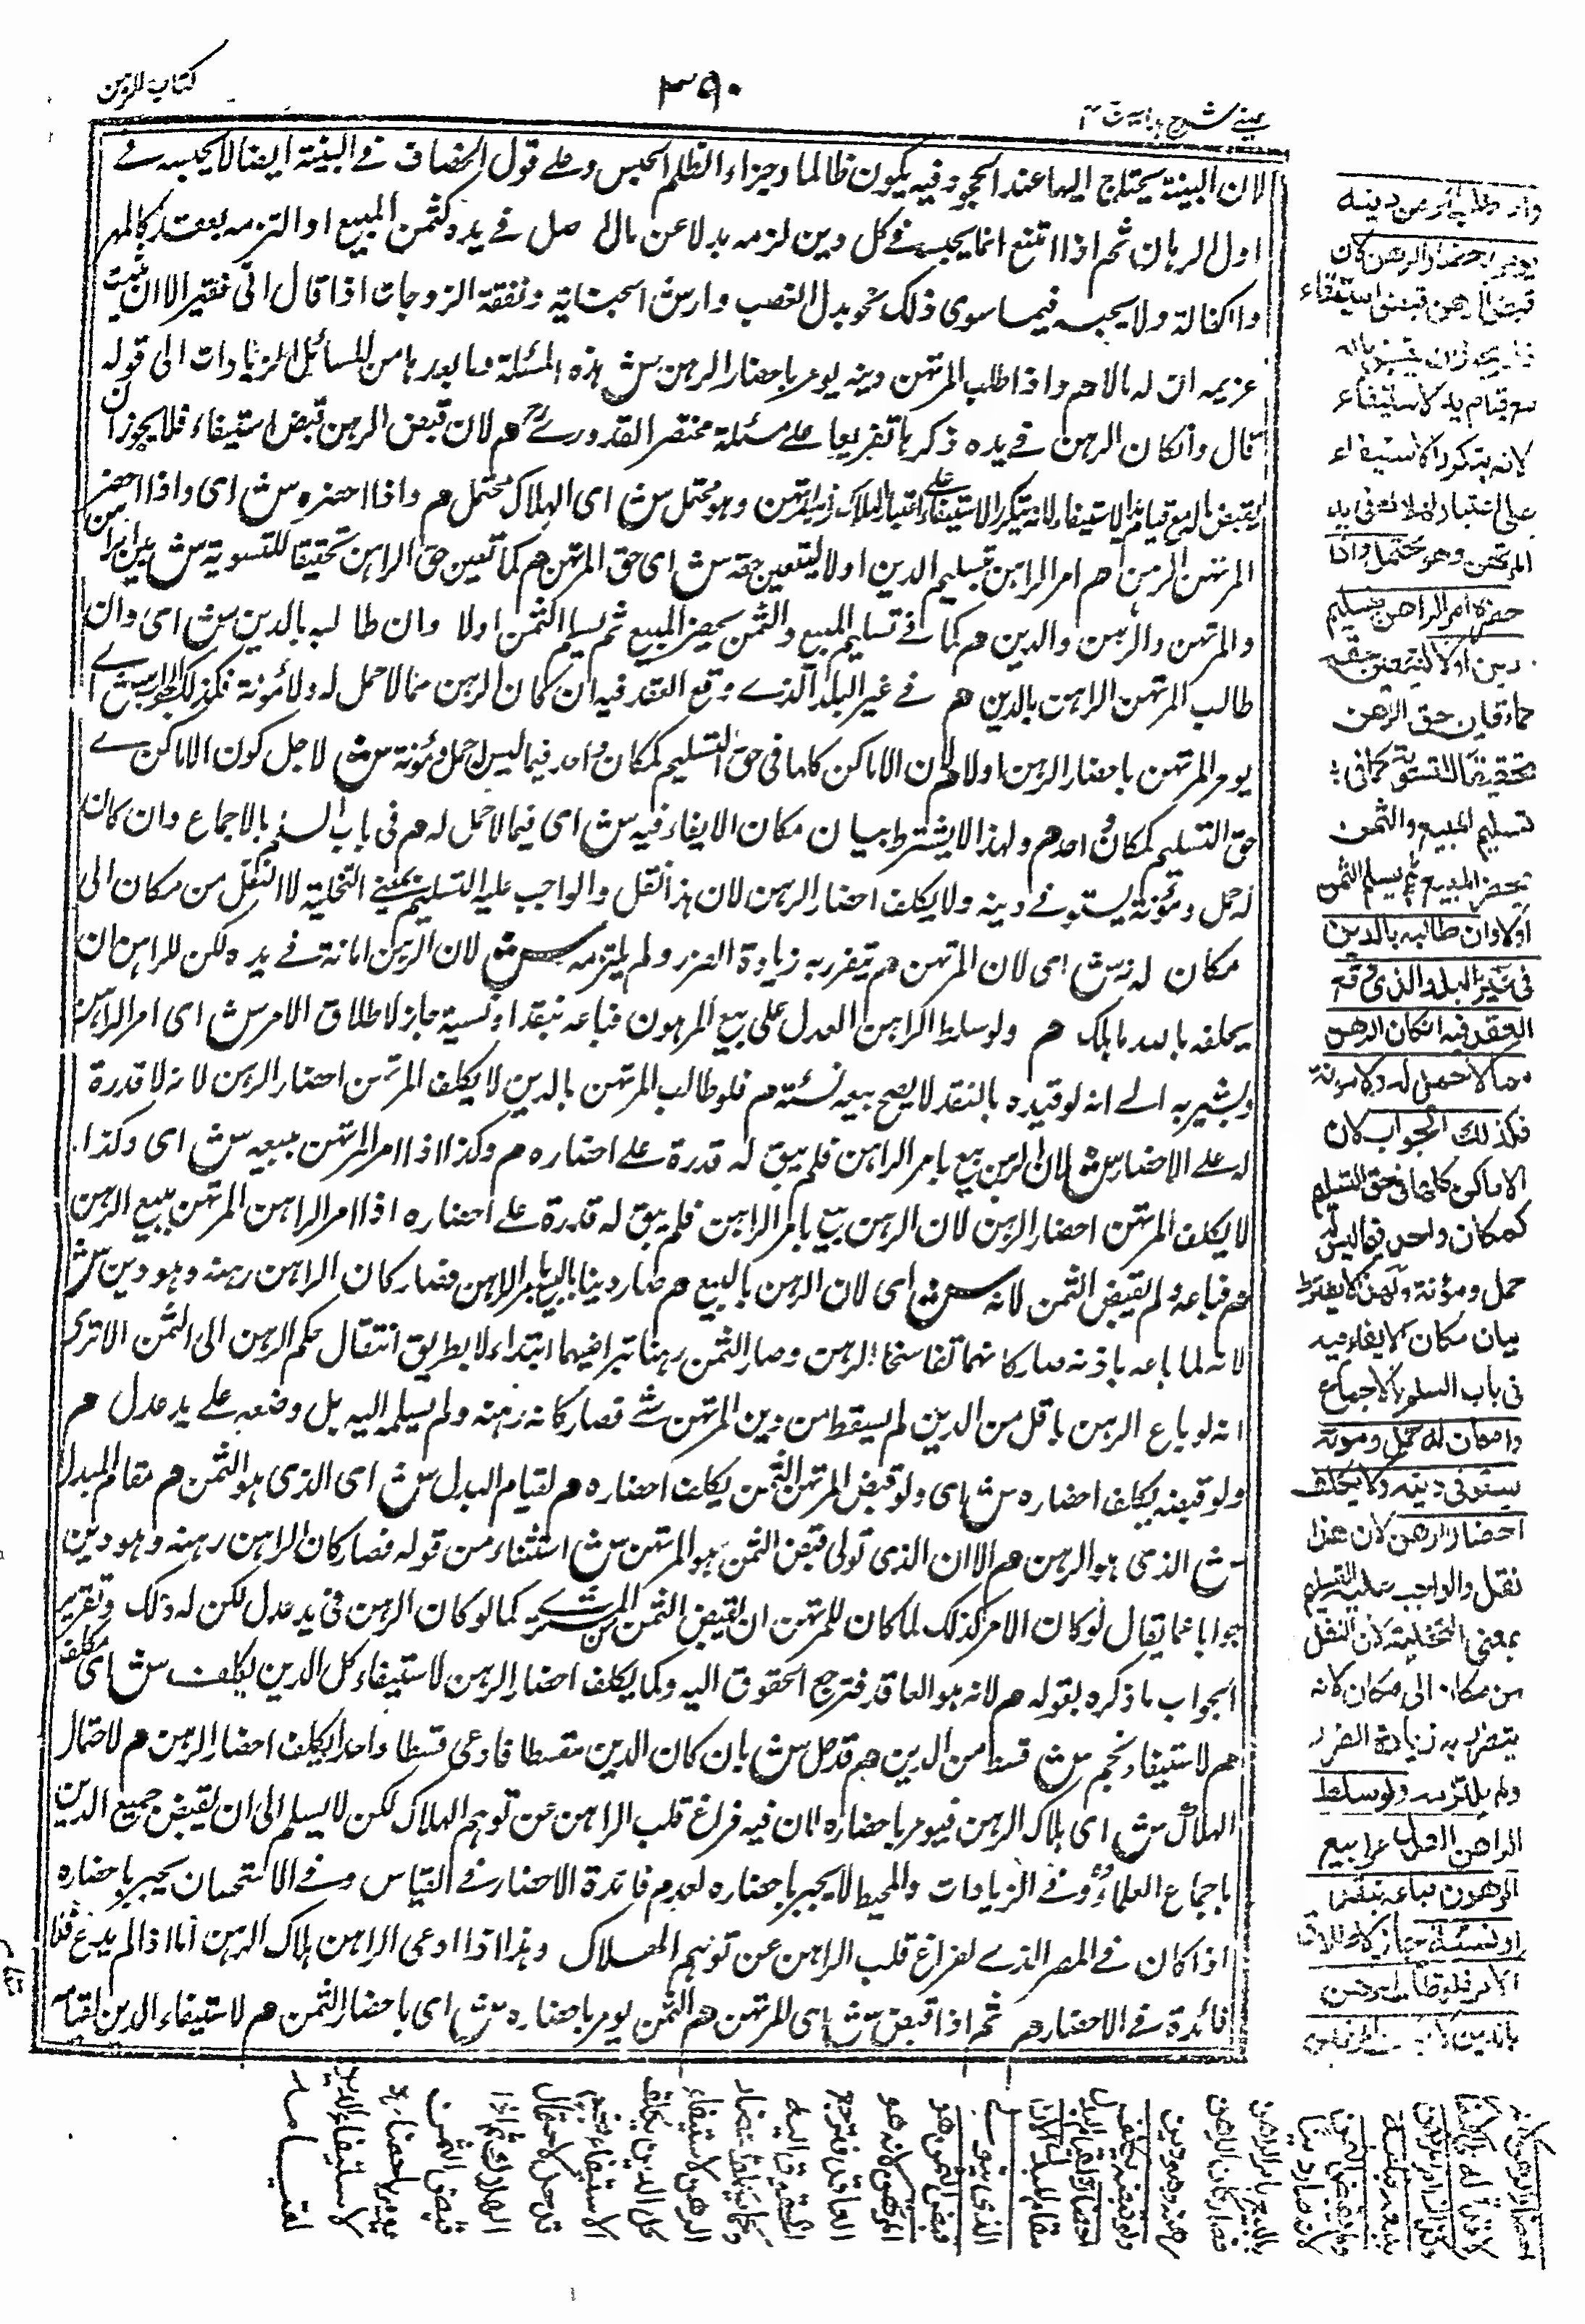 كتاب الرهن
٣٩٠
عينى شرح هدايه ج ٤
لان البينة يحتاج اليها عند الجحود وفيه يكون ظالما وجزاء الظلم الحبس وعلى قول الخصاف فى البينة ايضا لا يحبسه فى
اول الرهان ثم اذا امتنع انما يحبسه فى كل دين لزمه بدلا عن مال حصل فى يده كثمن المبيع او التزمه بعقد كالمهر
والكفالة ولا يحبسه فيما سوى ذلك نحو بدل الغصب وارش الجناية ونفقة الزوجات اذا قال انى فقير الا ان يثبت
غريمه ان له مالا هم واذا طلب المرتهن دينه يومر باحضار الرهن ش هذه المسئلة وما بعدها من المسائل الزيادات الى قوله
قال وان كان الرهن فى يده ذكرها تفريعا على مسئلة مختصر القدورى هم لان قبض الرهن قبض استيفاء فلا يجوز ان
يقبض ماله مع قيام يد الاستيفاء لانه يتكرر الاستيفاء على اعتبار الهلاك فى يد المرتهن وهو محتمل ش اى الهلاك محتمل هم واذا احضره ش اى واذا احضر
المرتهن الرهن هم امر الراهن بتسليم الدين اولا ليتعين حقه ش اى حق المرتهن هم كما تعين حق الراهن تحقيقا للتسوية ش بين الراهن
والمرتهن والرهن والدين هم كما فى تسليم المبيع والثمن يحضر المبيع ثم يسلم الثمن اولا وان طالبه بالدين ش اى وان
طالب المرتهن الراهن بالدين هم فى غير البلد الذى وقع العقد فيه ان كان الرهن مما لا حمل له ولا مؤنة فكذلك الجواب ش اى
يومر المرتهن باحضار الرهن اولا هم لان الاماكن كلها فى حق التسليم كمكان واحد فيما ليس له حمل ومؤنة ش لاجل كون الاماكن فى
حق التسليم كمكان واحد هم ولهذا لا يشترط بيان مكان الايفاء فيه ش اى فيما لا حمل له هم فى باب السلم بالاجماع وان كان
له حمل ومؤنة يستوفى دينه ولا يكلف احضار الرهن لان هذا نقل والواجب عليه التسليم بمعنى التخلية لا النقل من مكان الى
مكان لانه ش اى لان المرتهن هم يتضرر به زيادة الضرر ولم يلتزمه ش لان الرهن امانة فى يده لكن للراهن ان
يحلفه بالله ما هلك هم ولو سلط الراهن العدل على بيع المرهون فباعه بنقد او نسيئة جاز لاطلاق الامر ش اى امر الراهن
ويشير به الى انه لو قيده بالنقد لا يصح بيعه نسئة هم فلو طالب المرتهن بالدين لا يكلف المرتهن احضار الرهن لانه لا قدرة
له على الاحضار ش لان الرهن بيع بامر الراهن فلم يبق له قدرة على احضاره هم وكذا اذا امر المرتهن ببيعه ش اى وكذا
لا يكلف المرتهن احضار الرهن لان الرهن بيع بامر الراهن فلم يبق له قدرة على احضاره اذا امر الراهن المرتهن ببيع الرهن
هم فباعه ولم يقبض الثمن لانه ش اى لان الرهن بالبيع هم صار دينا بالبيع بامر الراهن فصار كان الراهن رهنه وهو دين ش
لانه لما باعه باذنه صار كانهما تفاسخا الرهن وصار الثمن رهنا بتراضيهما ابتداء لا بطريق انتقال حكم الرهن الى الثمن الا ترى
انه لو باع الرهن باقل من الدين لم يسقط من دين المرتهن شى فصار كانه رهنه ولم يسلمه اليه بل وضعه على يد عدل هم
ولو قبضه يكلف احضاره ش اى ولو قبض المرتهن الثمن يكلف احضاره هم لقيام البدل ش اى الذى هو الثمن هم مقام المبدل
ش الذى هو الرهن هم الا ان الذى تولى قبض الثمن هو المرتهن ش استثناء من قوله فصار كان الراهن رهنه وهو دين
جوابا عما يقال لو كان الامر كذلك لما كان للمرتهن ان يقبض الثمن من المشترى كما لو كان الرهن فى يد عدل لكن له ذلك وتقرير
الجواب ما ذكره بقوله هم لانه هو العاقد فترجع الحقوق اليه وكما يكلف احضار الرهن لاستيفاء كل الدين يكلف ش اى يكلف
هم لاستيفاء نجم ش قسط من الدين هم قد حل ش بان كان الدين مقسطا فادعى قسطا واحدا يكلف احضار الرهن هم لاحتمال
الهلاك ش اى هلاك الرهن فيومر باحضاره لان فيه فراغ قلب الراهن عن توهم الهلاك لكن لا يسلم الى ان يقبض جميع الدين
باجماع العلماء وفى الزيادات والمحيط لا يجبر باحضاره لعدم فائدة الاحضار فى القياس وفى الاستحسان يجبر باحضاره
اذا كان فى المصر الذى لفراغ قلب الراهن عن توهم الهلاك وهذا اذا ادعى الراهن هلاك الرهن اما اذا لم يدع فلا
فائدة فى الاحضار هم ثم اذا قبض ش اى المرتهن هم الثمن يومر باحضاره ش اى باحضار الثمن هم لاستيفاء الدين لقيامه
واذا طلب المرتهن دينه
يومر باحضار الرهن لان
قبض الرهن قبض استيفاء
فلا يجوز ان يقبض ماله
مع قيام يد الاستيفاء
لانه يتكرر الاستيفاء
على اعتبار الهلاك فى يد
المرتهن وهو محتمل واذا
احضره امر الراهن بتسليم
الدين اولا ليتعين حقه
كما تعين حق الراهن
تحقيقا للتسوية كما فى
تسليم المبيع والثمن
يحضر المبيع ثم يسلم الثمن
اولا وان طالبه بالدين
فى غير البلد الذى وقع
العقد فيه ان كان الرهن
مما لا حمل له ولا مؤنة
فكذلك الجواب لان
الاماكن كلها فى حق التسليم
كمكان واحد فيما ليس له
حمل ومؤنة ولهذا لا يشترط
بيان مكان الايفاء فيه
فى باب السلم بالاجماع
وان كان له حمل ومؤنة
يستوفى دينه ولا يكلف
احضار الرهن لان هذا
نقل والواجب عليه التسليم
بمعنى التخلية لا النقل
من مكان الى مكان لانه
يتضرر به زيادة الضرر
ولم يلتزمه ولو سلط
الراهن العدل على بيع
المرهون فباعه بنقد
او نسئة جاز لاطلاق
الامر فلو طالب المرتهن
بالدين لا يكلف المرتهن
احضار الرهن لانه
لا قدرة له على الاحضار
وكذا اذا امر المرتهن
ببيعه فباعه
ولم يقبض الثمن
لانه صار دينا
بالبيع بامر الراهن
فصار كان الراهن
رهنه وهو دين
ولو قبضه يكلف
احضاره لقيام البدل
مقام المبدل الا ان
الذى يتولى
قبض الثمن هو
المرتهن لانه هو
العاقد فترجع
الحقوق اليه
وكما يكلف احضار
الرهن لاستيفاء
كل الدين يكلف
لاستيفاء نجم
قد حل لاحتمال
الهلاك ثم اذا
قبض الثمن
يومر باحضاره
لاستيفاء الدين
لقيامه